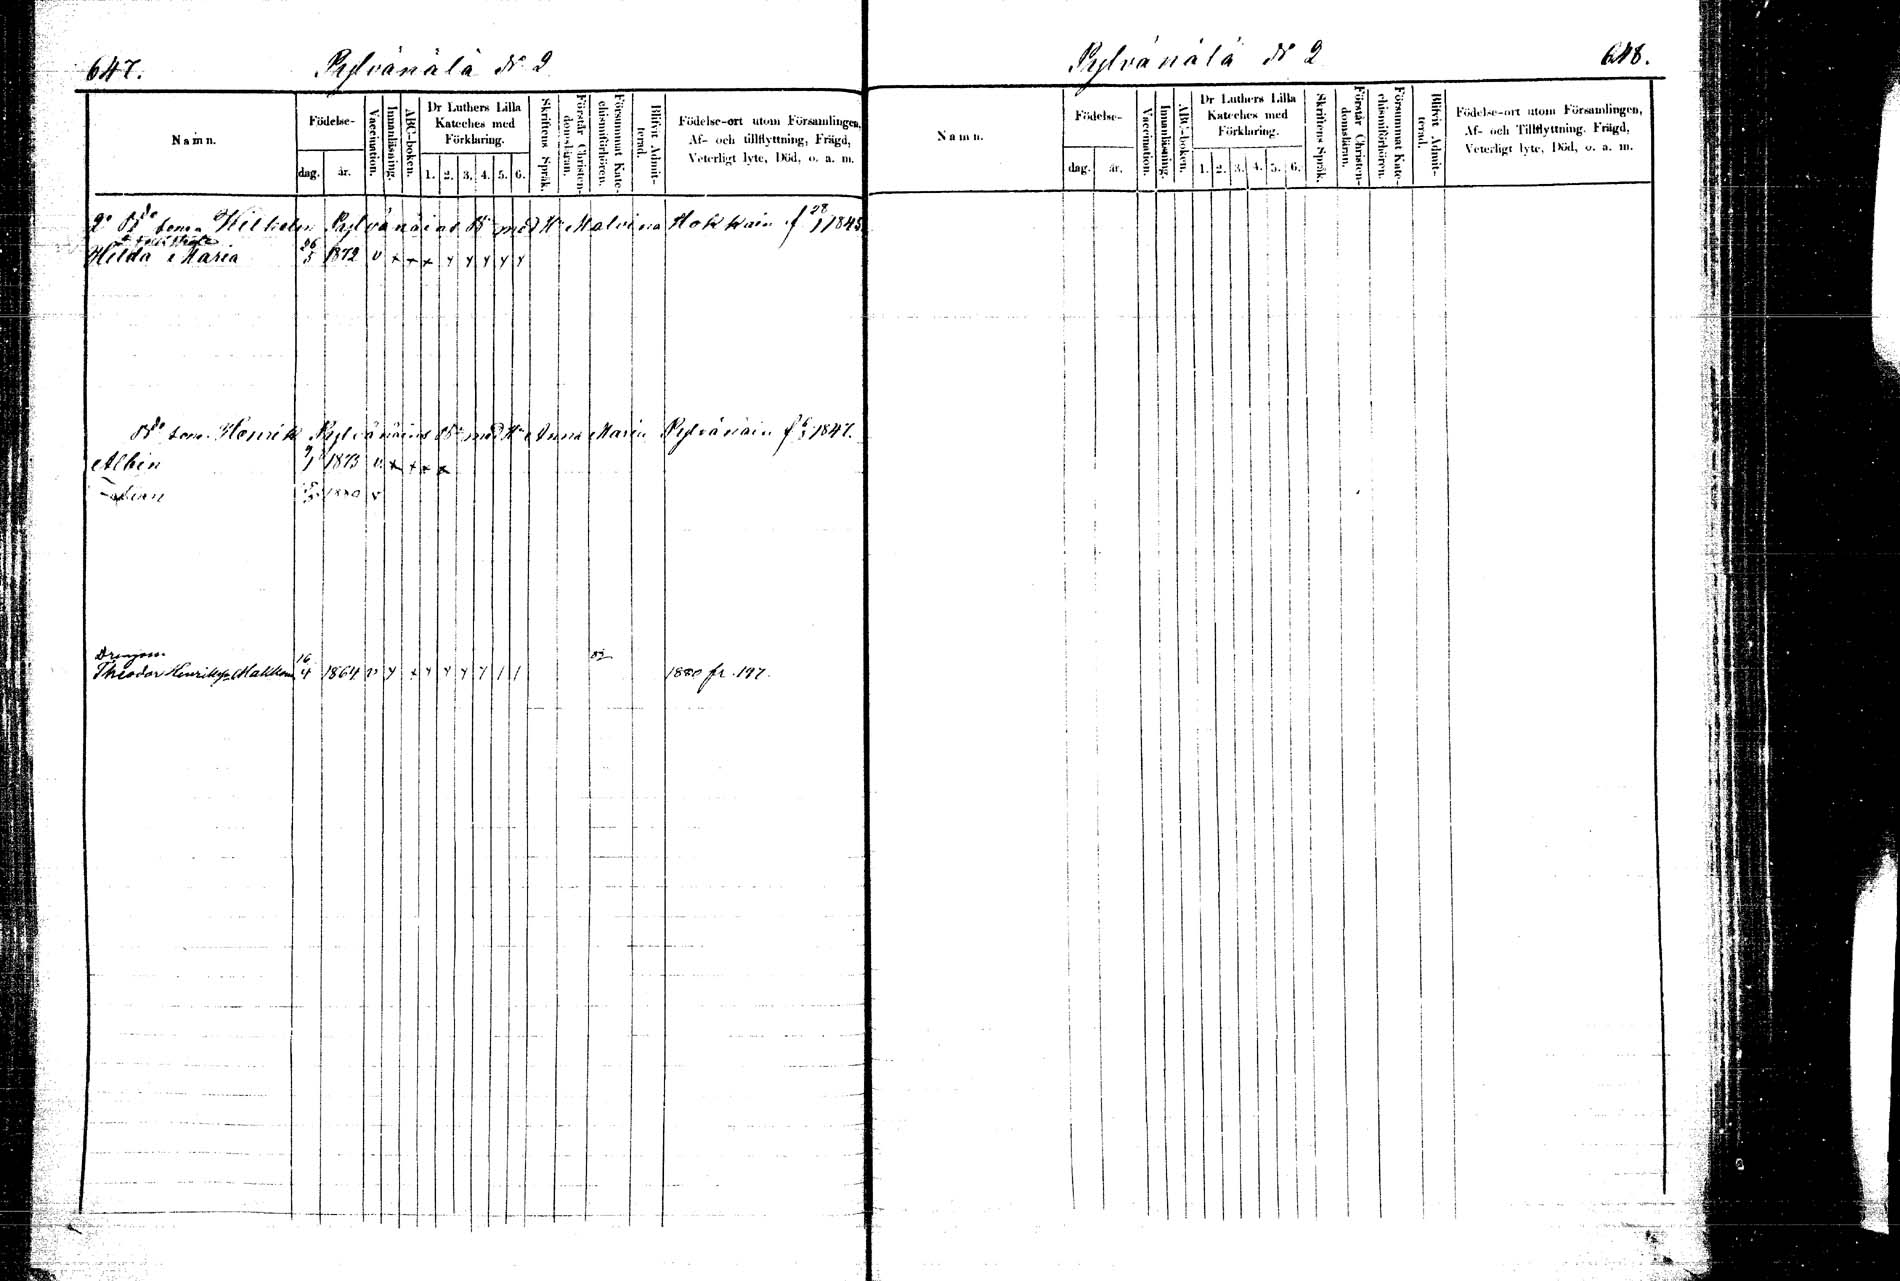 647.
Pylvänälä No 2
Namn.
Födelse-
dag.
år.
Vaccination.
Innanläsning.
ABC-boken.
Dr Luthers Lilla
Kateches med
Förklaring.
1. 2. 3. 4. 5. 6.
Skriftens Språk.
Förstår Christen-
domsläran.
Försummat Kate-
chismiförhören.
Blifvit Admit-
terad.
Födelse-ort utom Församlingen,
Af- och tillflyttning, Frägd,
Veterligt lyte, Död, o. a. m.
Wilhelm Pylvänäins med Malvina Hokkain f 28/1 1845
Hilda Maria 26/5 1872 v x x x y y y y y
Henrik Pylvänäins med Anna Maria Pylvänäin f 1847.
Albin 9/1 1873 v. x x x x
1880 v
Theodor 16/4 1864 v y x y y y y 1 1 1880 fr. 197.
Pylvänälä No 2
648.
Namn.
Födelse-
dag.
år.
Vaccination.
Innanläsning.
ABC-boken.
Dr Luthers Lilla
Kateches med
Förklaring.
1. 2. 3. 4. 5. 6.
Skriftens Språk.
Förstår Christen-
domsläran.
Försummat Kate-
chismiförhören.
Blifvit Admit-
terad.
Födelse-ort utom Församlingen,
Af- och Tillflyttning. Frägd,
Veterligt lyte, Död, o. a. m.